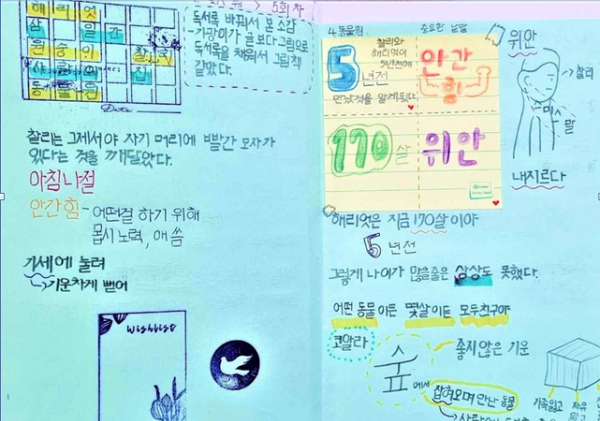 해리엇
5회차
독서록 바꿔서 본 소감
가장이 글보다 그림으로
독서록을 채워서 그림책
같았다.
Date
찰리는 그제서야 자기 머리에 빨간 모자가
있다는 것을 깨달았다.
아침나절
안간힘 - 어떤걸 하기 위해
몹시 노력, 애씀
기세에 눌려
기운차게 뻗어
Wishlist
4.동물원
5
년전
찰리와
해리엇이
5년전에
만났것을 알게된다
안간
힘
170살
위안
위안
찰리
말
내지르다
해리엇은 지금 170살 이야
5년전
그렇게 나이가 많을줄은 상상도 못했다.
어떤 동물이든 몇살이든 모두친구야
코알라
숲에서
좋지않은 기운
잡혀오며 만난 동물